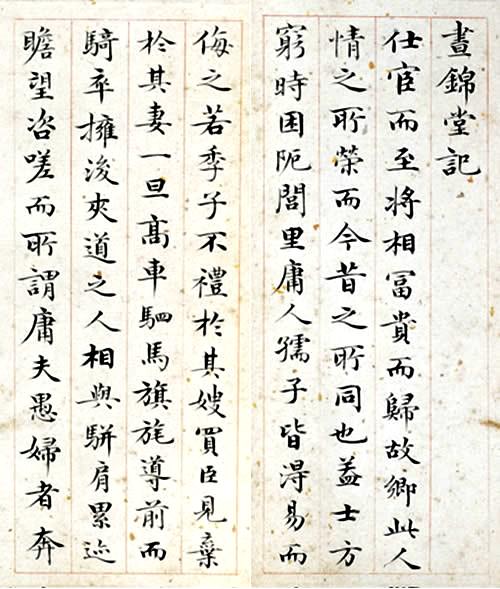 晝錦堂記
仕宦而至將相冨貴而歸故鄉此人
情之所榮而今昔之所同也葢士方
窮時困阨閭里庸人孺子皆得易而
侮之若季子不禮於其嫂買臣見棄
於其妻一旦髙車駟馬旗旄導前而
騎卒擁後夾道之人相與駢肩累迹
瞻望咨嗟而所謂庸夫愚婦者奔